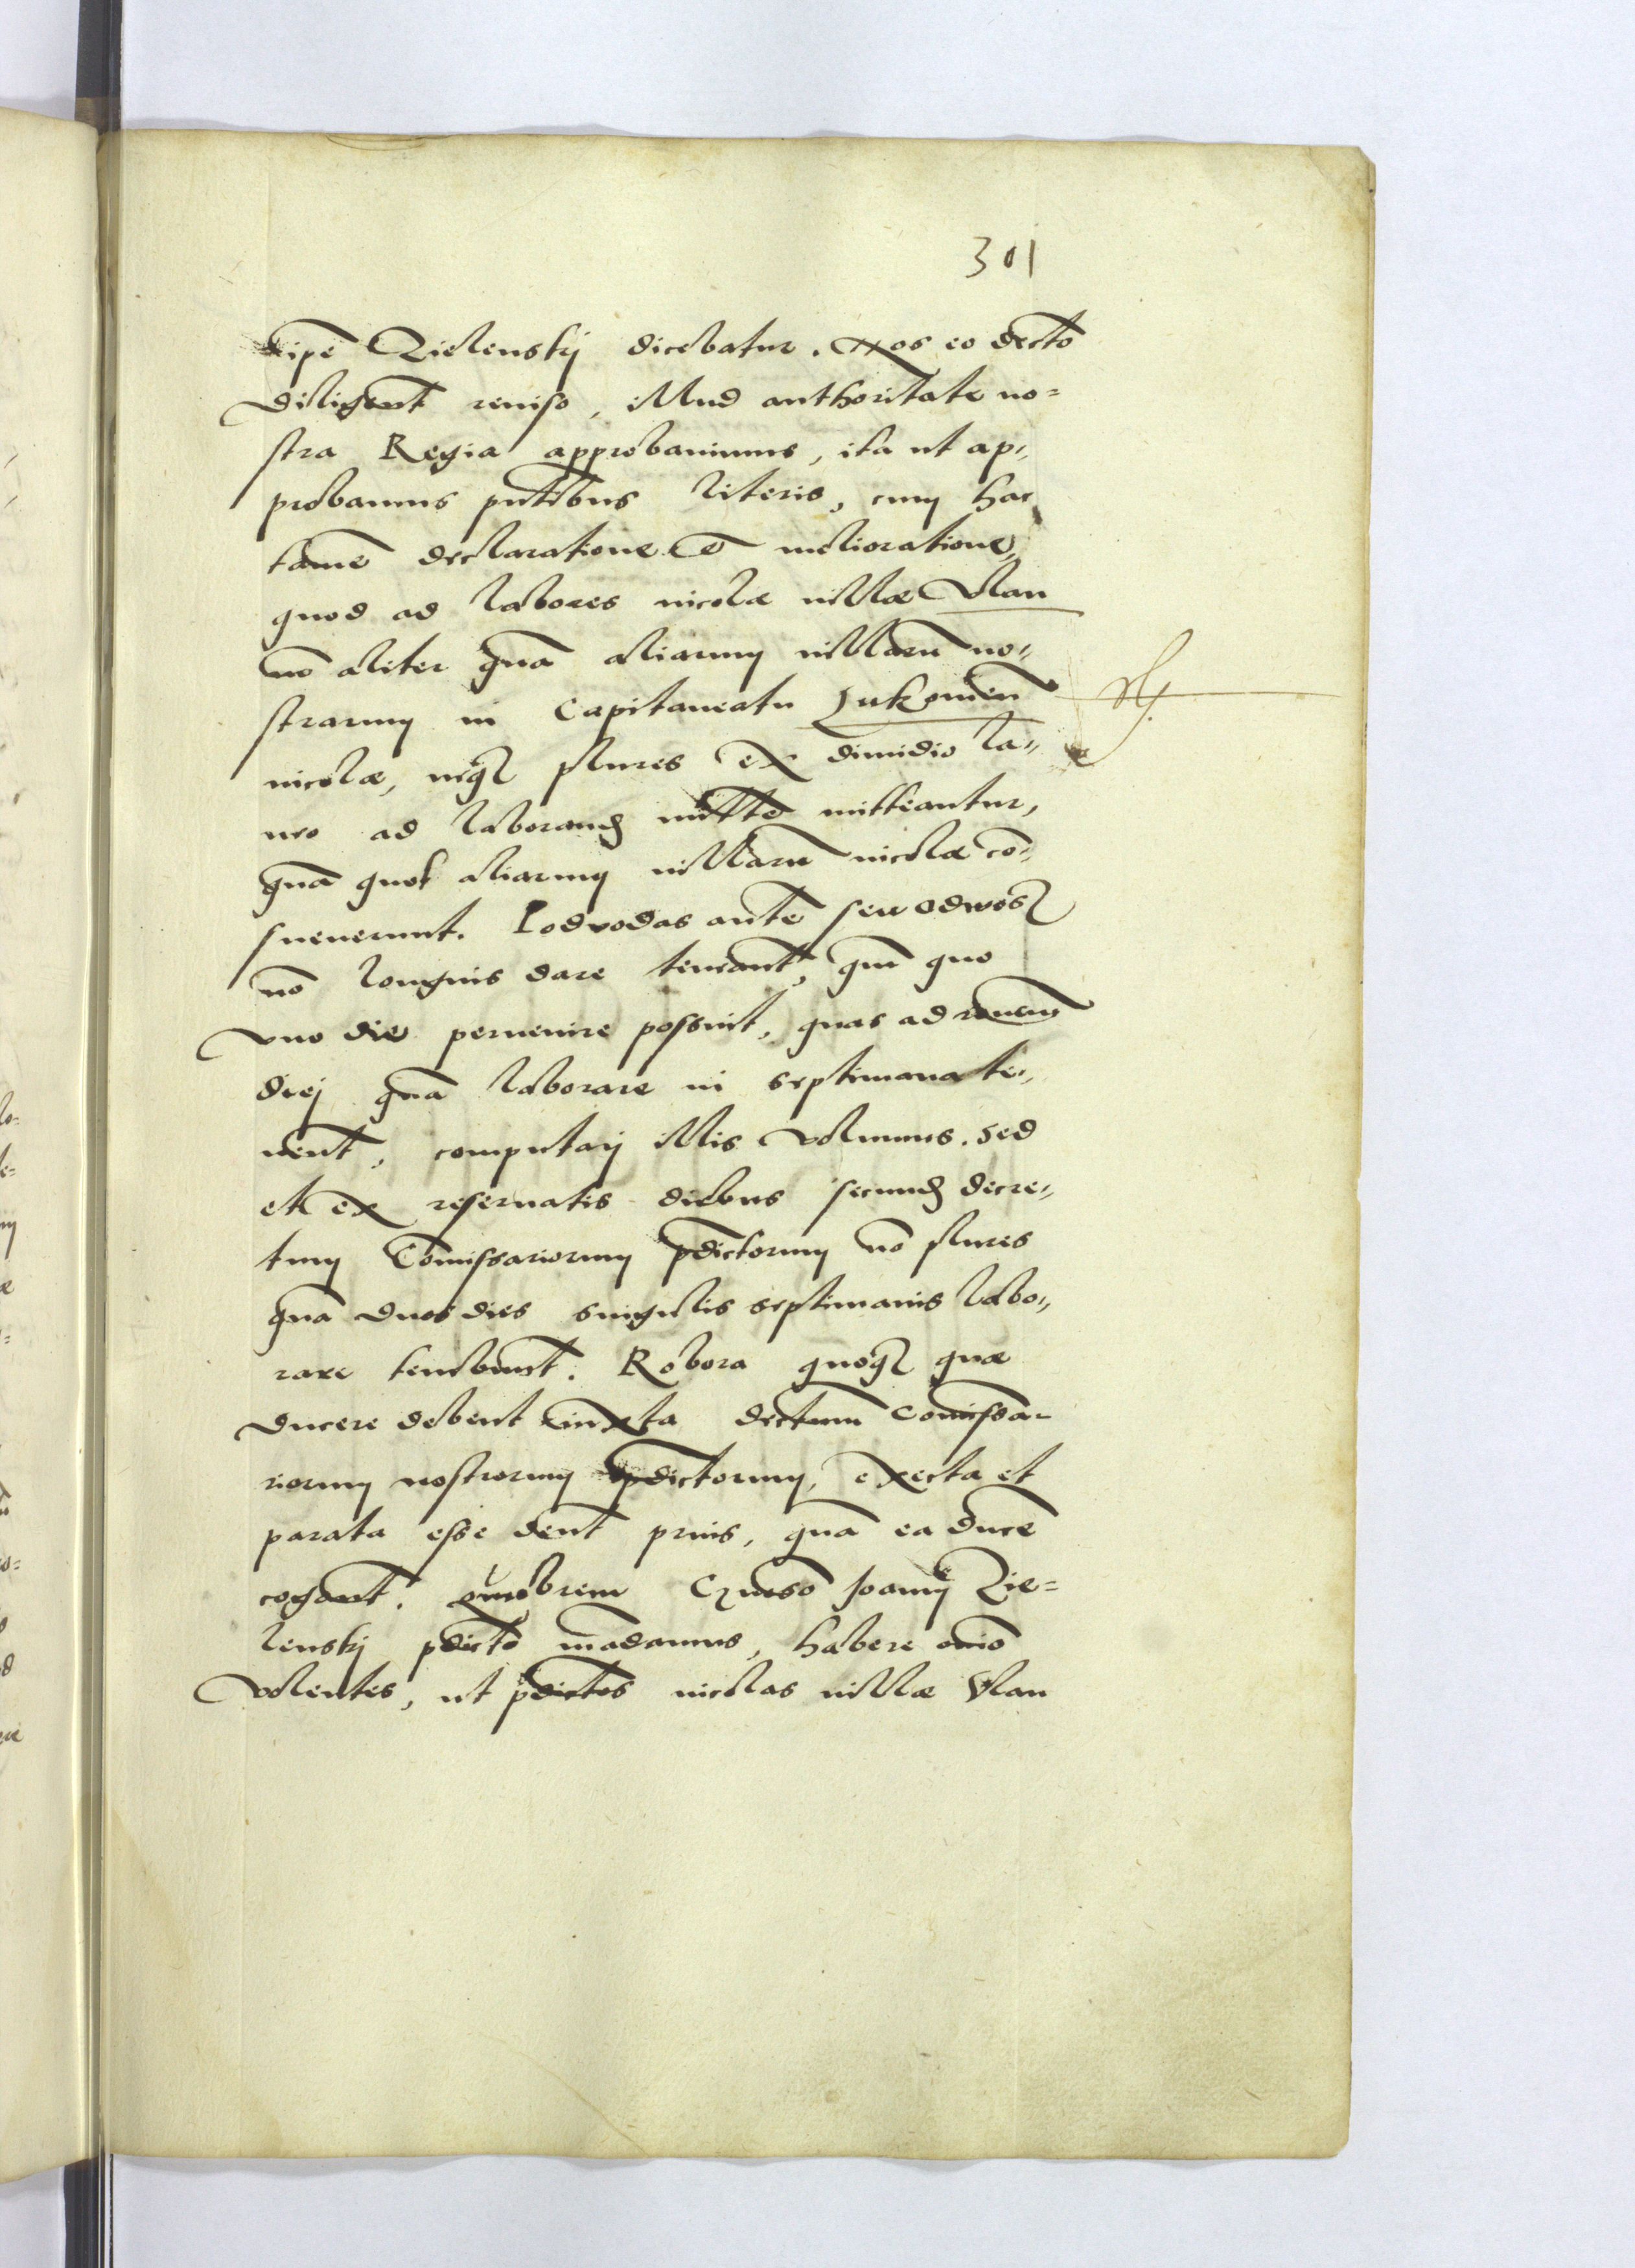 301
ipē Zielenskij dicebatur. Nos eo decto
diligent reuiso, illud authoritate no=
stra Regia approbauimus, ita ut ap=
probamus pntibus literis, cum hac
tamē declaratione et melioratione,
quod ad labores incolæ uillæ Vlan
nō aliter quā aliarum uillarū no=
strarum in Capitaneatu Lukouien
incolæ, neq3 plures ex dimidio la=
neo ad laborand mitteantur,
quā quot aliarum uillarū incolæ cō=
sueuerunt. Podvodas autē seu odwos
nō longius dare teneant, quā quo
vno die peruenire possint, quas ad
diej quā laborare in septimana te=
nent, computarj illis volumus. Sed
et ex reseruatis diebus secund decre=
tum Comissariorum pdictorum nō plures
quā duos dies singulis septimanis labo=
rare tenebunt. Robora quoq3 quæ
ducere debent iuxta dectum Comissa=
riorum nostrorum pdictorum, execta et
parata esse debent prius, quā ea ducē
cogant. quāobrem Gnoso Joannij Zie=
lenskj pdicto mādamus, habere omīo
volentes, ut pdictos incolas uillæ Vlan